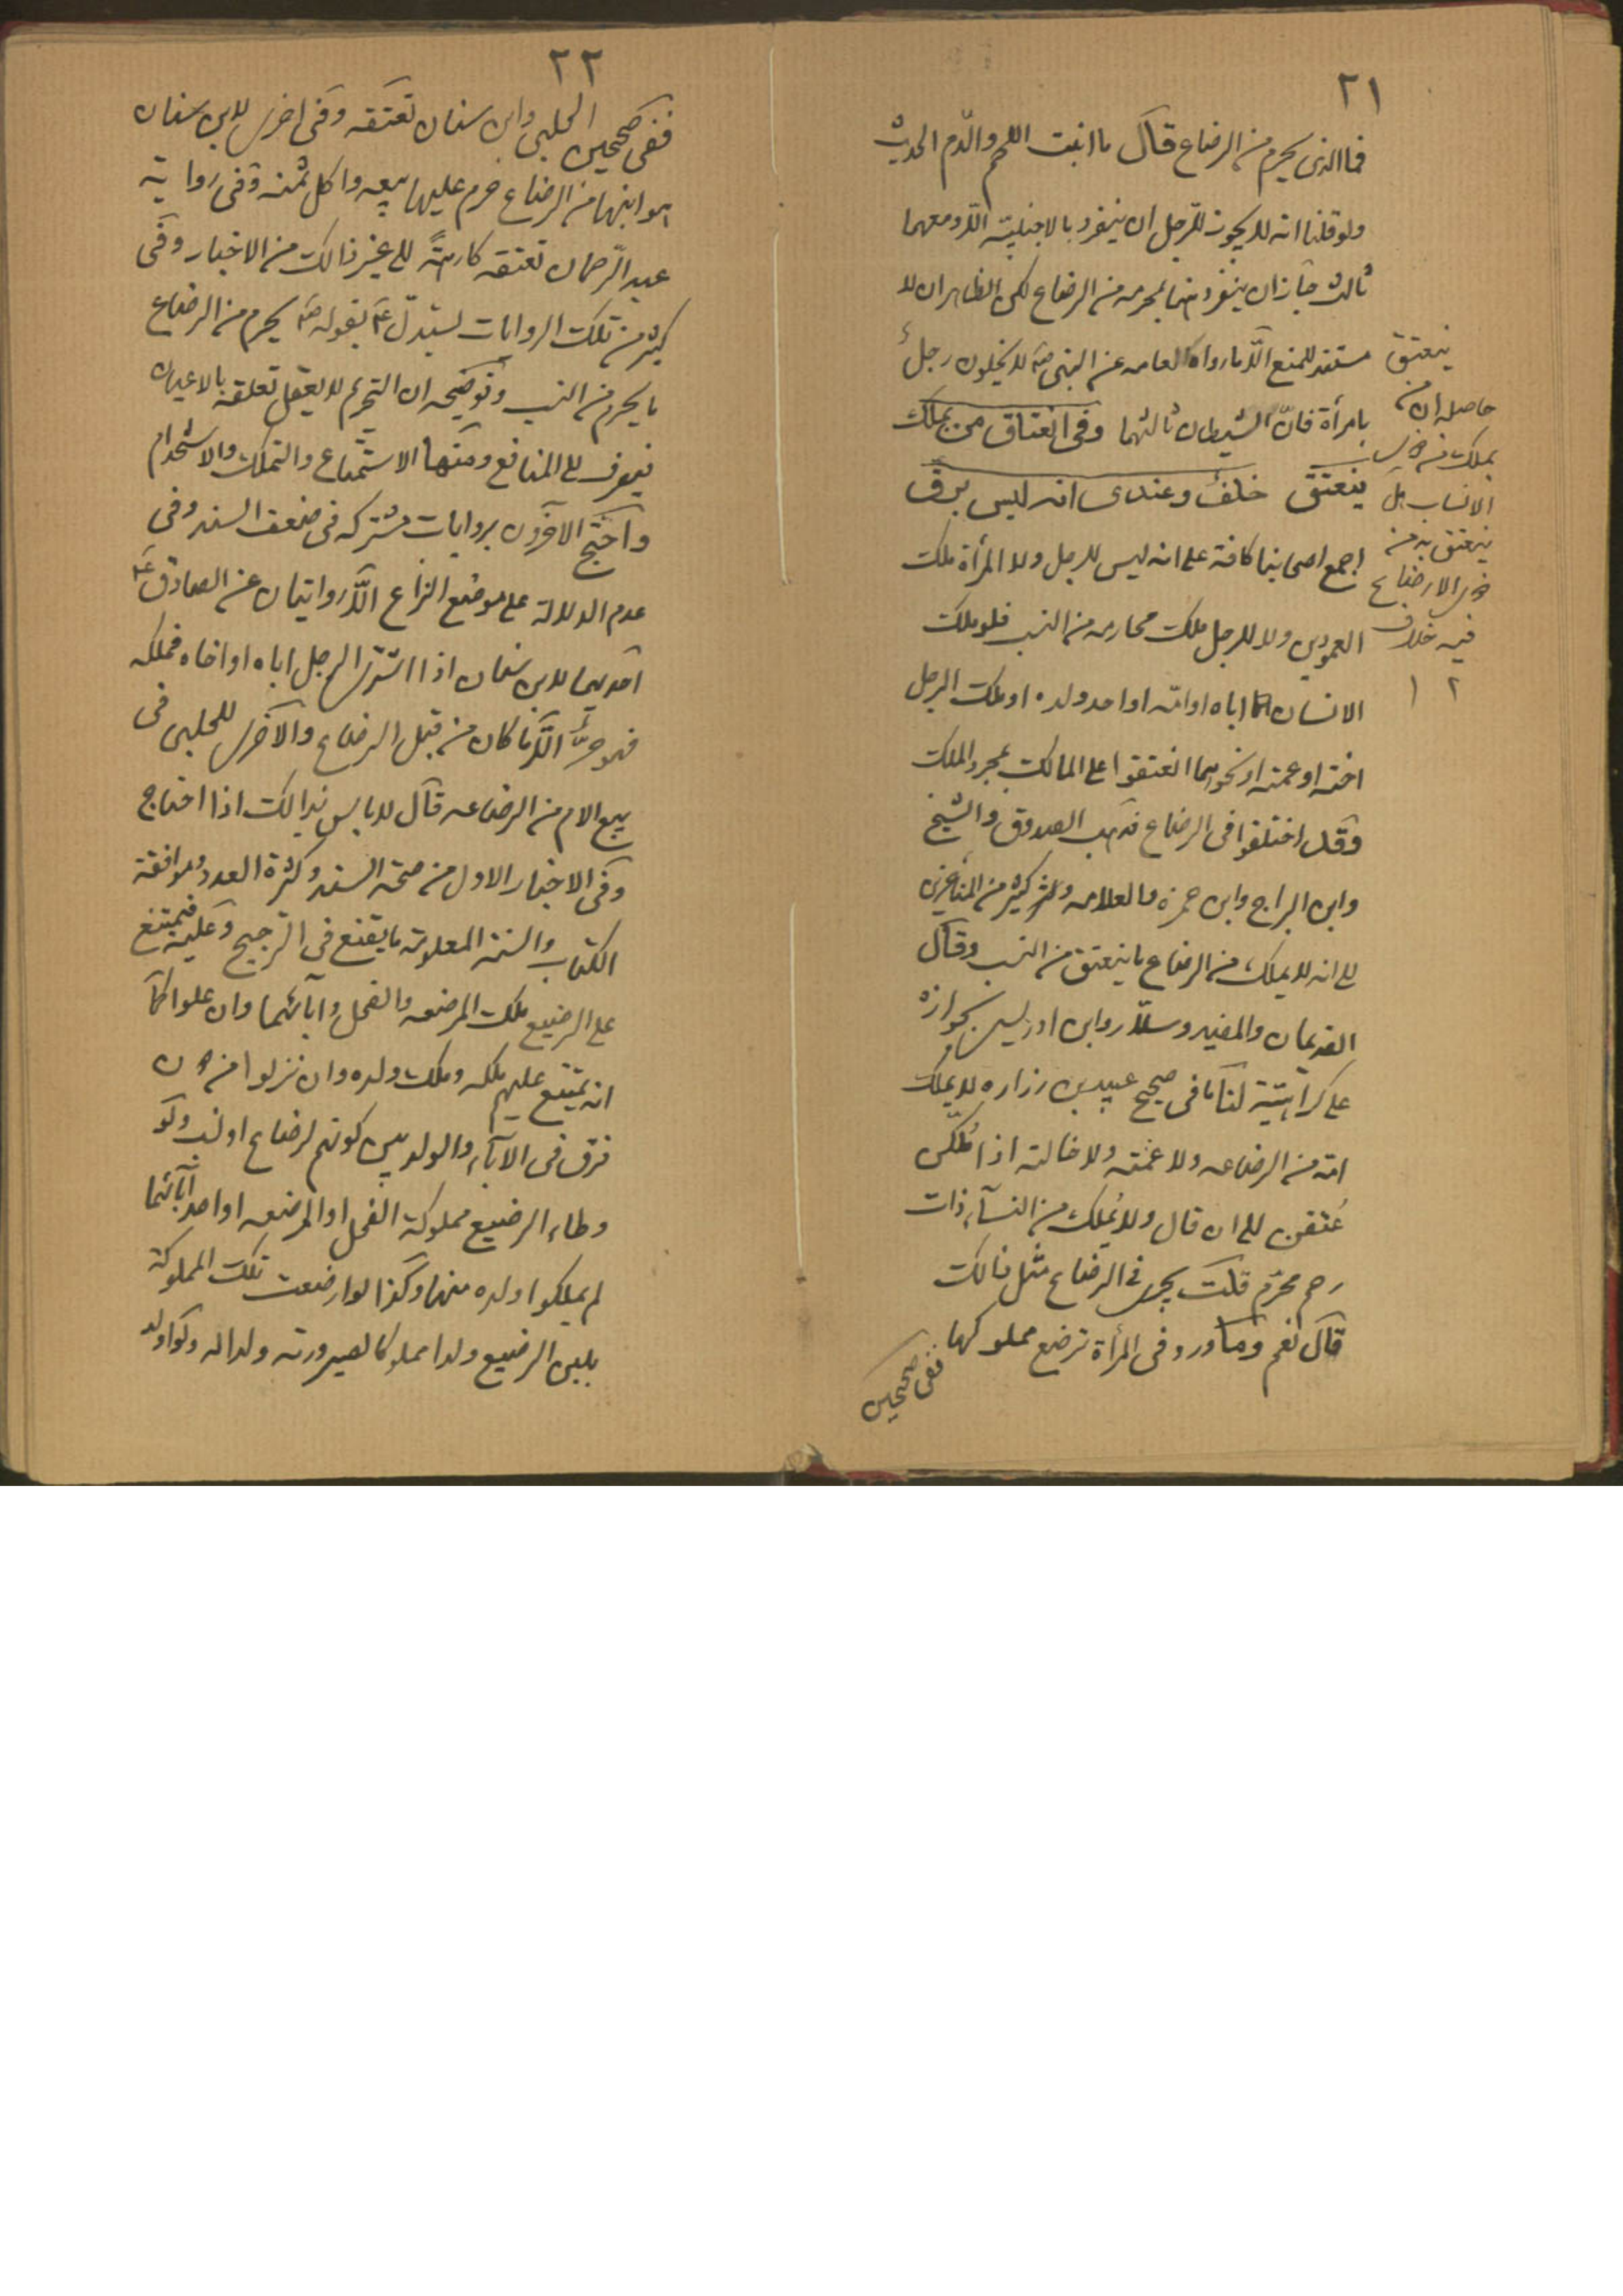 ٢١
فما الذی یحرم من الرضاع قال ما انبت اللحم والدّم الحدیث
ولو قلنا انه لا یجوز للرجل ان ینفرد بالاجنبیّة الّا ومعهما
ثالث جاز ان ینفرد هنا بمحرمه من الرضاع لکن الظاهر ان لا
مستند للمنع الّا ما رواه العامه عن النبی صٓ لا یخلون رجلٌ
بامرأة فانّ الشیطان ثالثهما وفی انعتاق من یملک
ینعتق خلفٌ وعندی انه لیس برق
اجمع اصحابنا کافة علی انه لیس للرجل ولا المرأة ملک
العمودین ولا للرجل ملک محارمه من النسب فلو ملک
الانسان اباه او امّه او احد ولده او ملک الرجل
اخته او عمته او نحوهما انعتقوا علی المالک بمجرد الملک
وقد اختلفوا فی الرضاع فذهب الصدوق والشیخ
وابن البراج وابن حمزه والعلامه وکثیر من المتاخرین
الی انه لا یملک من الرضاع ما ینعتق من النسب وقال
القدیمان والمفید وسلّار وابن ادریس بجوازه
علی کراهیّة لنا ما فی صحیح عبید بن زراره لا یملک
امّه من الرضاعه ولا عمّته ولا خالته اذا مُلکن
عُتقن الی ان قال ولا یُملک من النسآء ذات
رحم محرّم قلت یجری فی الرضاع مثل ذالک
قال نعم وما ورد فی المرأة ترضع مملوکها
ففی صحیحین
ینعتق
حاصله ان من
یملک من جهة
الانساب هل
ینعتق به من
جهة الارضاع
فیه خلاف
١٢
٢٢
ففی صحیحین الحلبی وابن سنان تعتقه وفی اخری لابن سنان
هو ابنها من الرضاع حرم علیها بیعه واکل ثمنه وفی روایة
عبد الرّحمان تعتقه کارهةً الی غیر ذالک من الاخبار وفی
کثیر من تلک الروایات یستدلّ عٓ بقوله صٓ یحرم من الرضاع
ما یحرم من النسب وتوضیحه ان التحریم لا یعقل تعلقه بالاعیان
فیصرف الی المنافع ومنها الاستمتاع والتملک والاستخدام
واحتج الآخرون بروایات مشترکه فی ضعف السند وفی
عدم الدلالة علی موضع النزاع الّا روایتان عن الصادق عٓ
احدیهما لابن سنان اذا اشتری الرجل اباه او اخاه فملکه
فهو حرٌّ الّا ما کان من قبل الرضاع والاخری للحلبی فی
بیع الام من الرضاعه قال لا باس بذالک اذا احتاج
وفی الاخبار الاول من صحة السند وکثرة العدد وموافقة
الکتاب والسنة المعلومة ما یقنع فی الترجیح وعلیه فیمتنع
علی الرضیع ملک المرضعه والفحل وآبائهما وان علوا کما
انه یمتنع علیهم ملکه وملک ولده وان نزلوا من دون
فرق فی الآباء والولد بین کونهم لرضاع او نسب ولو
وطاء الرضیع مملوکة الفحل او المرضعه او احد آبائهما
لم یملکوا ولده منها وکذا لو ارضعت تلک المملوکة
بلبن الرضیع ولدا مملوکا لصیرورته ولدا له ولو اولد